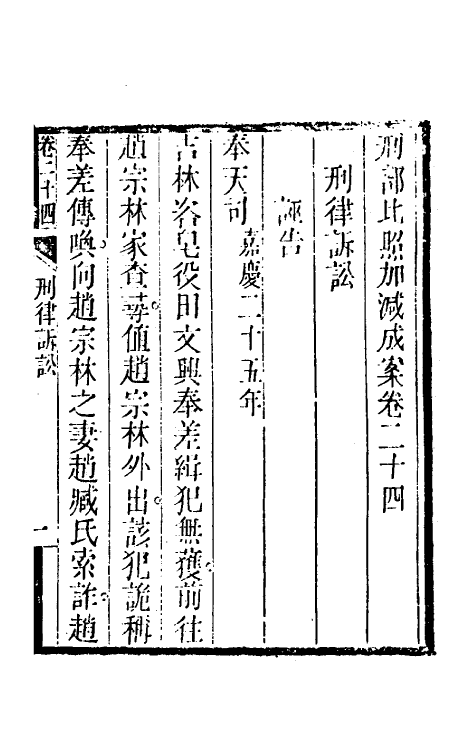 刑部比照加減成案卷二十四
刑律訴訟
誣告
奉天司 嘉慶二十五年
吉林咨皂役田文興奉差緝犯無獲前往
趙宗林家查尋值趙宗林外出該犯詭稱
奉差傳喚向趙宗林之妻趙臧氏索詐趙
卷二十四 刑律訴訟 一